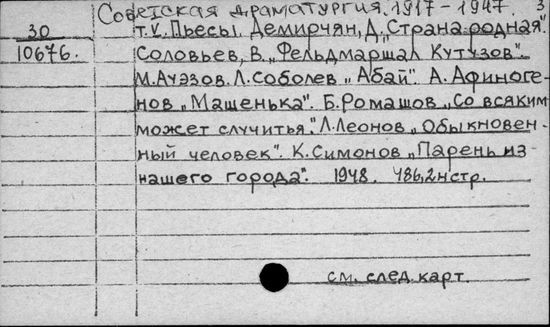 Советская драматургия. 1917 – 1947. 3
30 т.V. Пьесы. Демирчян, Д. „Страна родная".
10676. Соловьев, В. „Фельдмаршал Кутузов".
М. Ауэзов. Л. Соболев „Абай". А. Афиноге-
нов „Машенька". Б. Ромашов „Со всяким
может случитья." Л. Леонов „Обыкновен-
ный человек". К. Симонов „Парень из
нашего города". 1948. 486,2нстр.
см. след. карт.